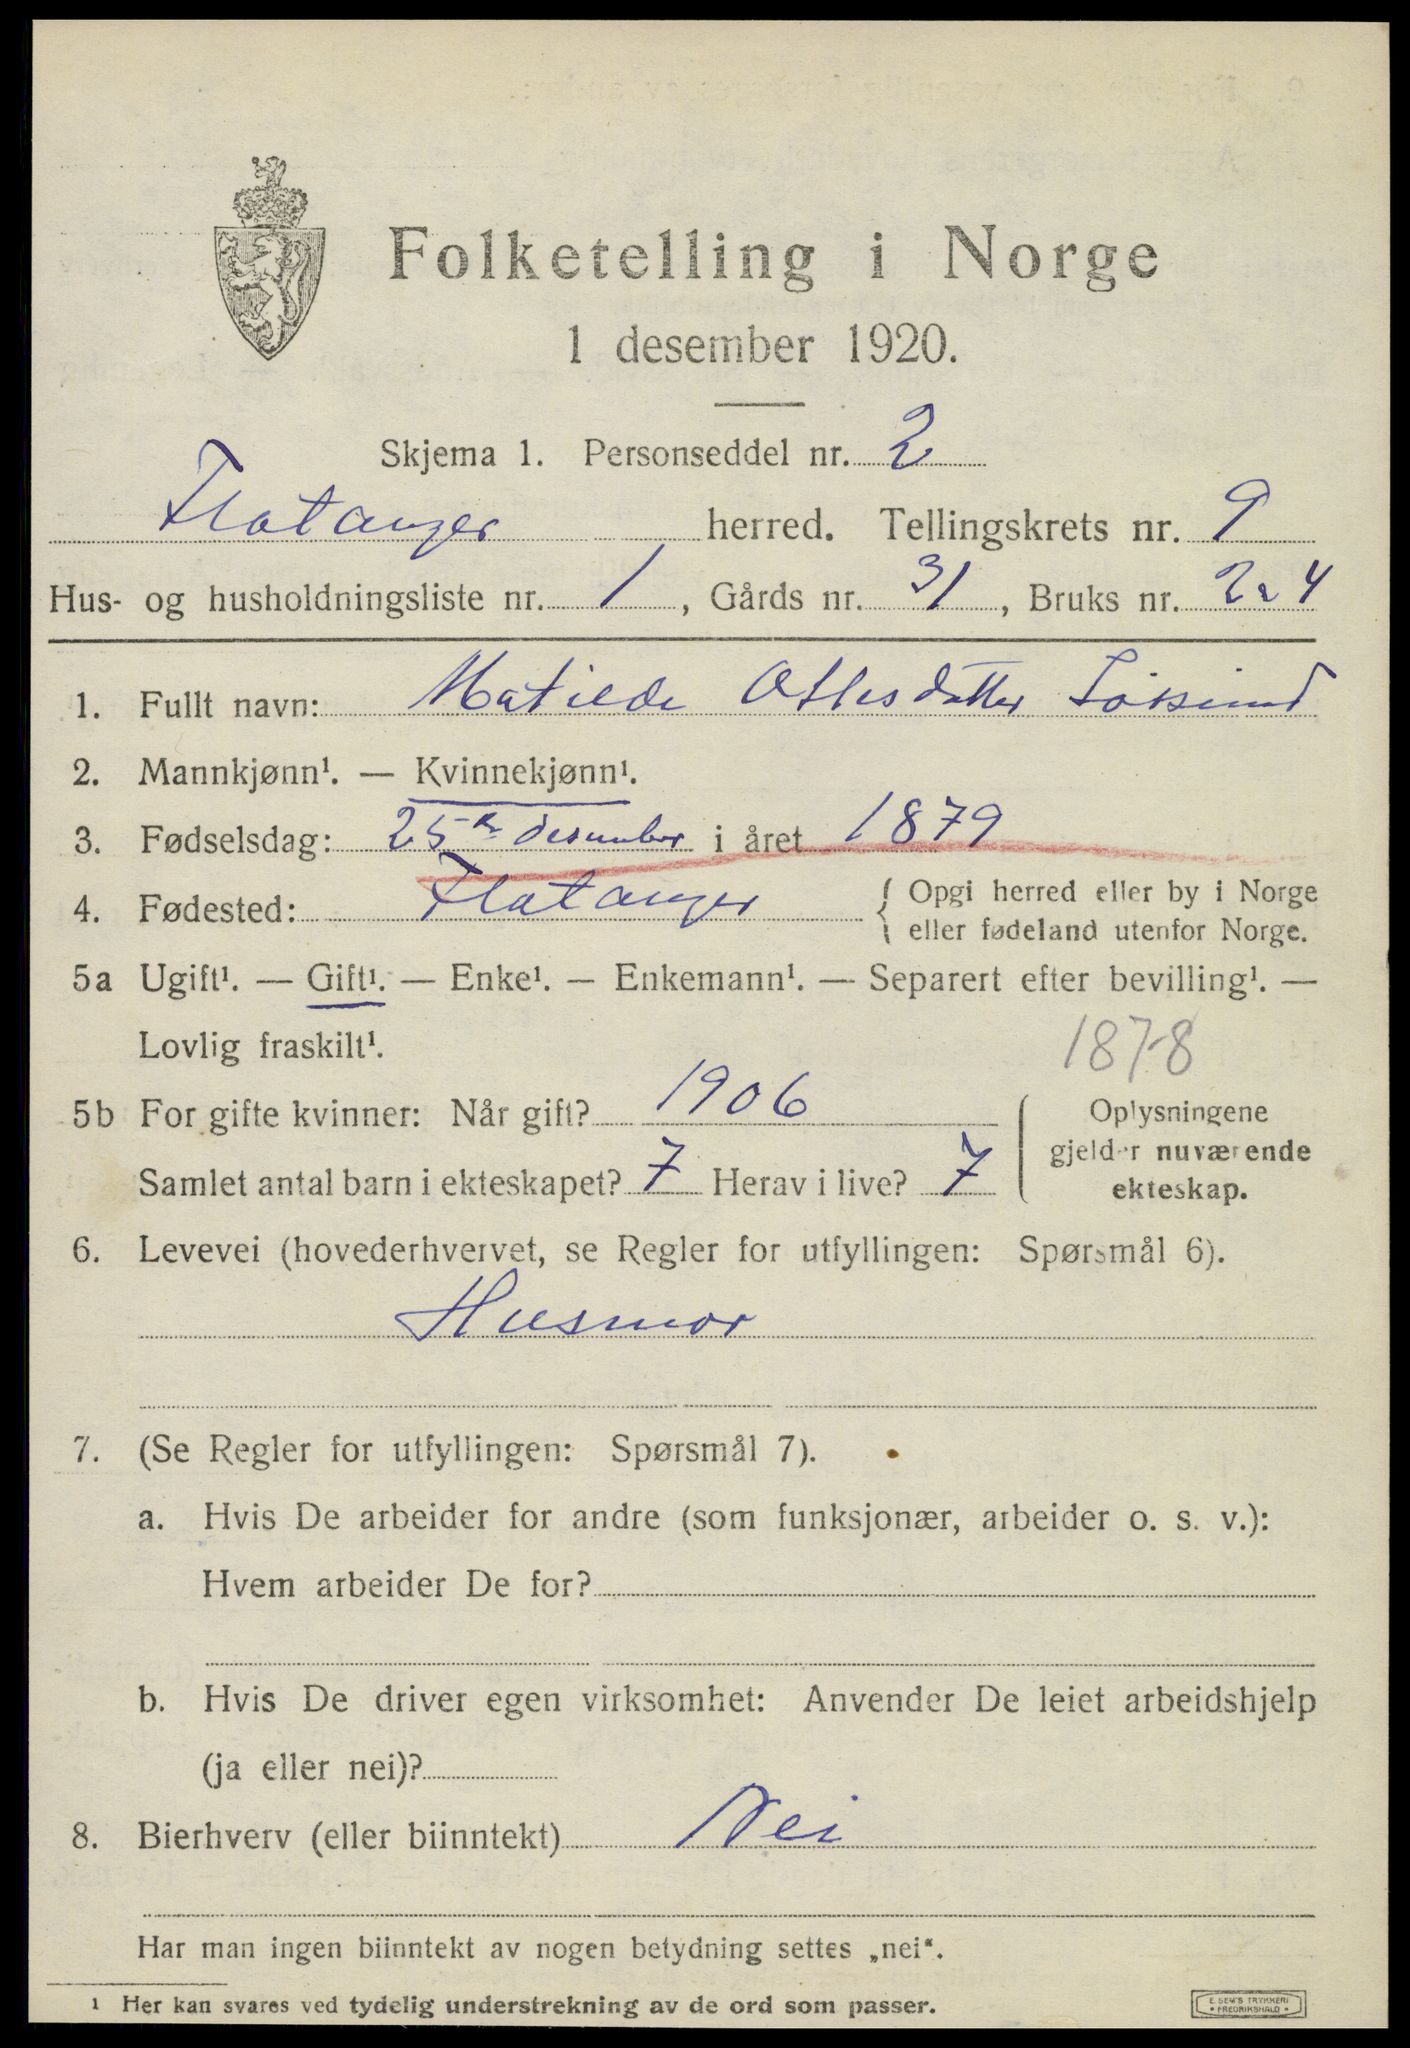 Folketelling i Norge
1 desember 1920.
Skjema 1. Personseddel nr. 2
Flatanger herred. Tellingskrets nr. 9
Hus- og husholdningsliste nr. 1, Gårds nr. 31, Bruks nr. 2 4
1. Fullt navn: Matilde Ottesdatter
2. Mannkjønn¹. — Kvinnekjønn¹.
3. Fødselsdag: 25 desember i året 1879
4. Fødested: Flatanger { Opgi herred eller by i Norge
eller fødeland utenfor Norge.
5a Ugift¹. — Gift¹. — Enke¹. — Enkemann¹. — Separert efter bevilling¹. —
Lovlig fraskilt¹.
1878
5b For gifte kvinner: Når gift? 1906
Samlet antal barn i ekteskapet? 7 Herav i live? 7
Oplysningene
gjelder nuværende
ekteskap.
6. Levevei (hovederhvervet, se Regler for utfyllingen: Spørsmål 6).
Husmor
7. (Se Regler for utfyllingen: Spørsmål 7).
a. Hvis De arbeider for andre (som funksjonær, arbeider o. s. v.):
Hvem arbeider De for?
b. Hvis De driver egen virksomhet: Anvender De leiet arbeidshjelp
(ja eller nei)?
8. Bierhverv (eller biinntekt) Nei
Har man ingen biinntekt av nogen betydning settes „nei“.
¹ Her kan svares ved tydelig understrekning av de ord som passer.
E. SEM'S TRYKKERI
• FREDRIKSHALD •